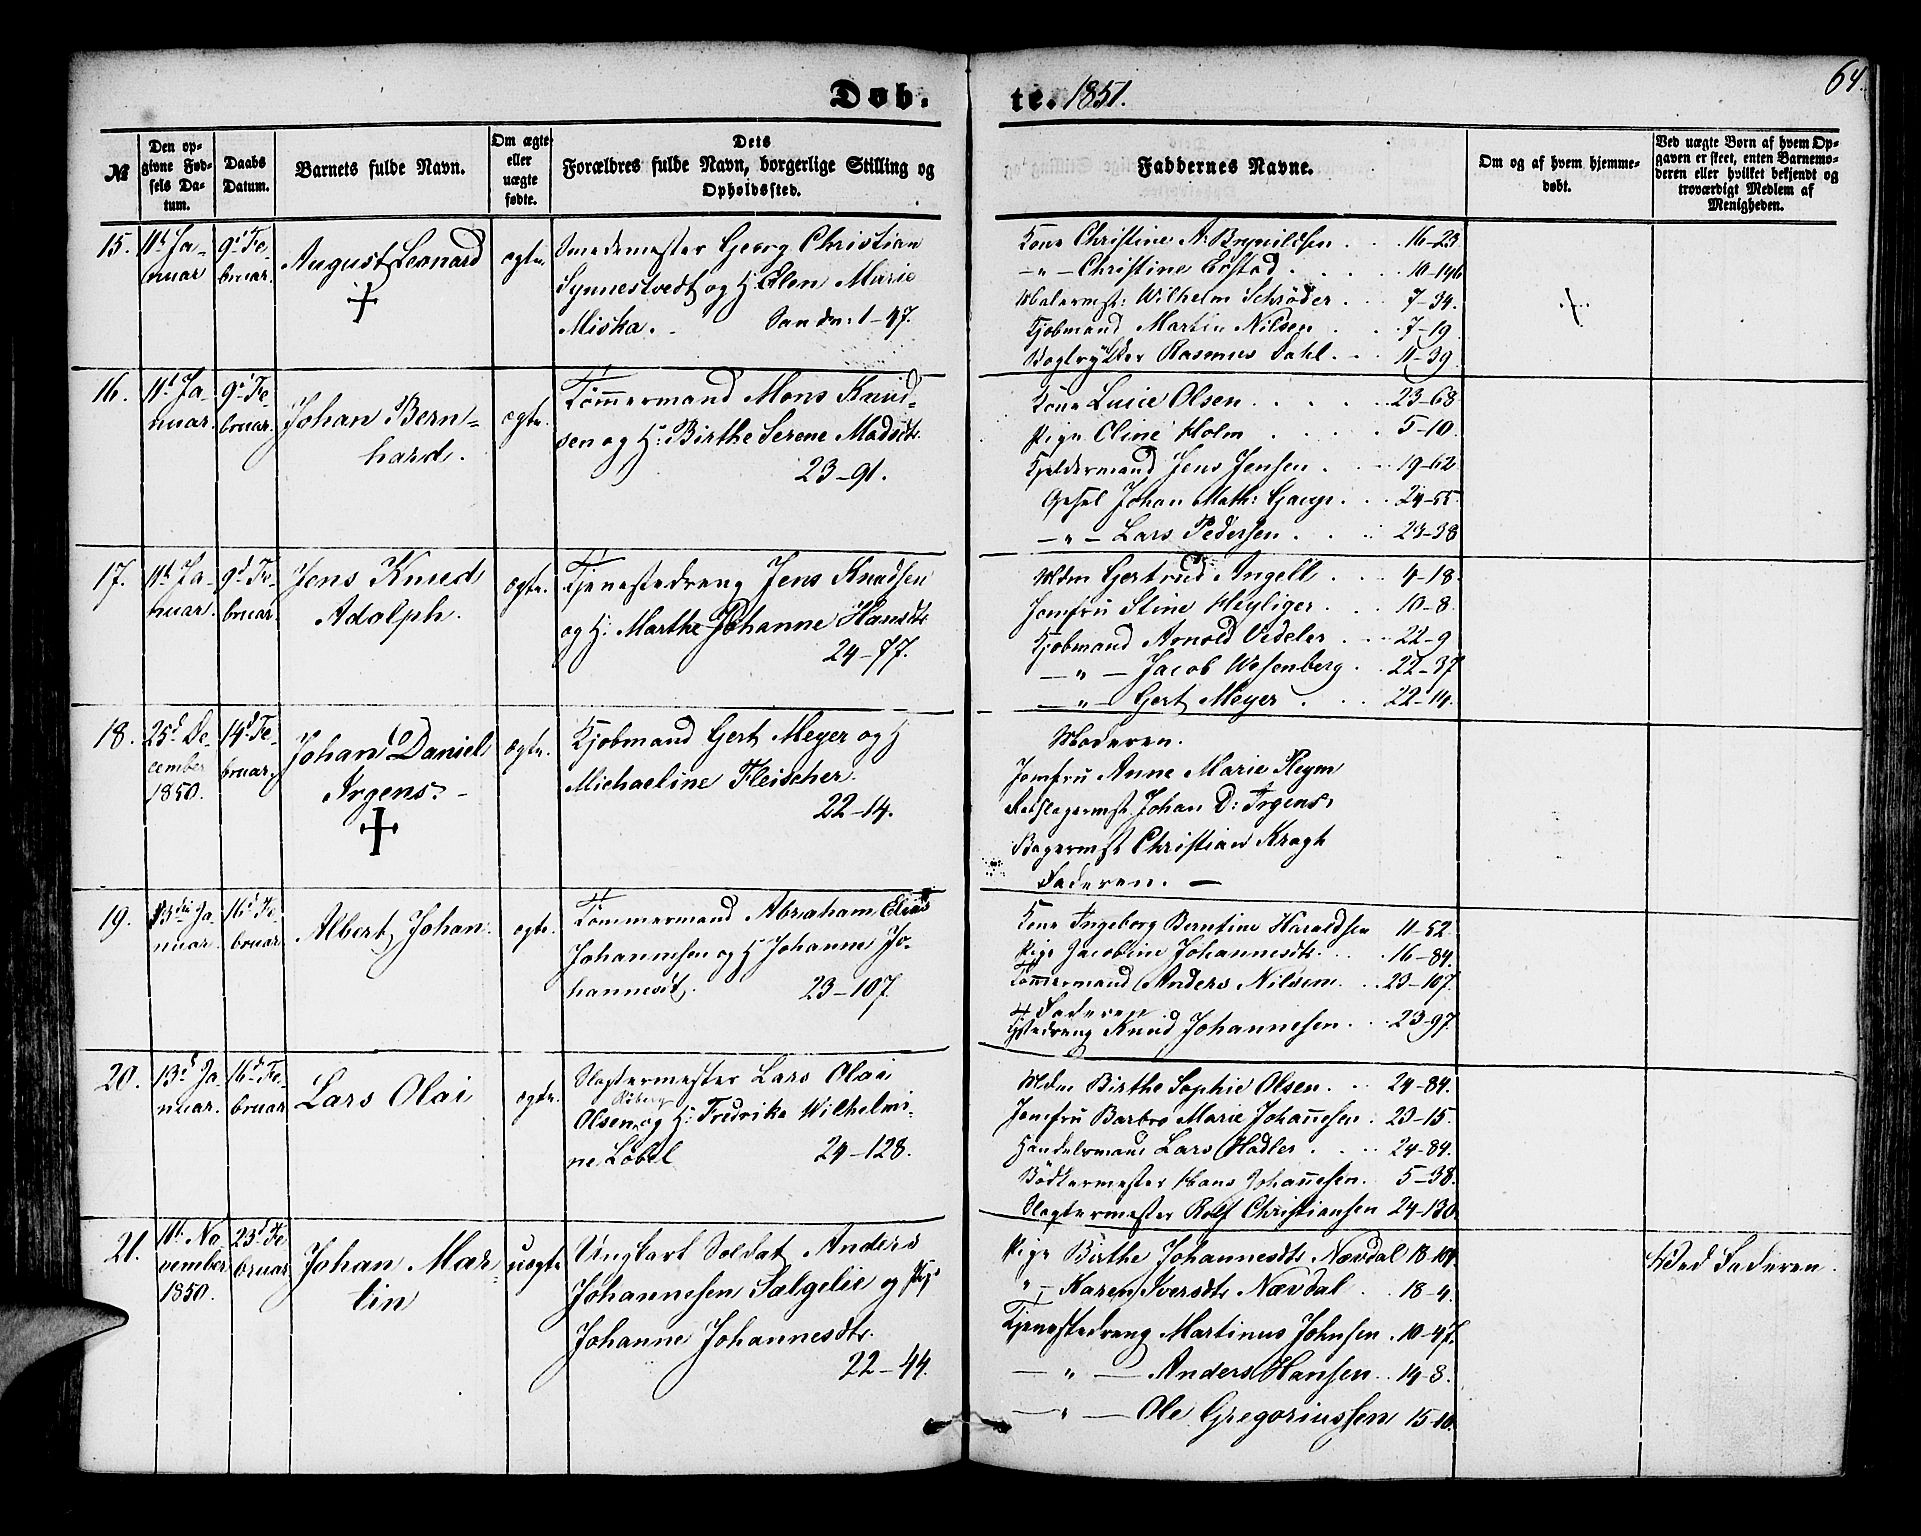 Døb. te. 1851. 64.
№
Den opgivne Fødsels Datum.
Daabs Datum.
Barnets fulde Navn.
Om ægte eller uægte fødte.
Dets Forældres fulde Navn, borgerlige Stilling og Opholdssted.
Faddernes Navne.
Om og af hvem hjemmedøbt.
Ved uægte Børn af hvem Opgaven er skeet, enten Barnemoderen eller hvilket bekjendt og troværdigt Medlem af Menigheden.
15.
11t Januar
9d Februar.
August Leonard
+
ægte.
Smedemester Georg Christian
Synnestvedt og H: Elen Marie
Miska. Sandv: 1-47.
Kone Christine A: Brynildsen . . 16-23
-"- Christine Eostad . . . . 10-146
Malermst: Wilhelm Schrøder . . 7-34.
Kjøbmand Martin Nilsen . . 7-19
Bogtrykker Rasmus Dahl . . . 11-39.
16.
11t Januar.
9d Februar.
Johan Bernhard.
ægte.
Tømmermand Mons Knud-
sen og H: Birthe Serene Madsdtr
23-91.
Kone Lucie Olsen . . . . 23-68
Pige Eline Holm . . . . 5-10.
Kjeldermand Jens Jensen . . . 19-62
Gesel Johan Math: . . . 24-55.
-"- Lars Pedersen . . . . 23-38
17.
11t Januar.
9d Februar.
Jens Knud
Adolph.
ægte.
Tjenestedreng Jens Knudsen
og H: Marthe Johanne Hansdtr
24-77.
Mdm Gertrud Angell . . . 4-18.
Jomfru Stine Heyliger . . . 10-8.
Kjøbmand Arnold Vedeler . . . 22-9
-"- Jacob Wesenberg . . 22-37
-"- Gert Meyer . . . 22-14.
18.
25d December 1850.
14d Februar,
Johan Daniel
Irgens. -
+
ægte.
Kjøbmand Gert Meyer og H
Michaeline Fleischer.
22-14.
Moderen.
Jomfru Anne Marie Heym
Johan D: Irgens,
Bagermst Christian Kragh
Faderen. -
19.
Januar.
16d Februar.
Albert Johan.
ægte.
Tømmermand Abraham Elias
Johannesen og H Johanne Jo-
hannesdt. 23-107.
Kone Ingeborg Berntine Haraldsen 11-52.
Pige Jacobine Johannesdtr. . . 16-84.
Tømmermand Anders Nilsen . . 23-107.
Faderen
Knud Johannesen . . . 23-97.
20.
13d Januar.
16d Februar
Lars Olai
ægte.
Slagtermester Lars Olai
Olsen og H: Fredrike Wilhelmi-
ne Løbel 24-128.
Mdm Birthe Sophie Olsen . . . 24-84.
Jomfru Barbro Marie Johannesen . 23-15.
Handelsmand Lars Hadler . . . 24-84.
Bødkermester Hans Johannesen . 5-38.
Slagtermester Rolf Christiansen 24-130.
21.
11t November 1850.
23d Februar
Johan Mar-
tin
uægte
Ungkarl Soldat Anders
Johannesen Sælgelie og Pige
Johanne Johannesdtr.
22-44.
Pige Birthe Johannesdtr Nævdal 18-104
"- Karen Iversdtr Nævdal . . 18-4.
Tjenestedreng Martinus Johnsen . 10-47.
-"- Anders Hansen . . 14-8.
-"- Ole Gregoriussen 15-10.
Ved Faderen.